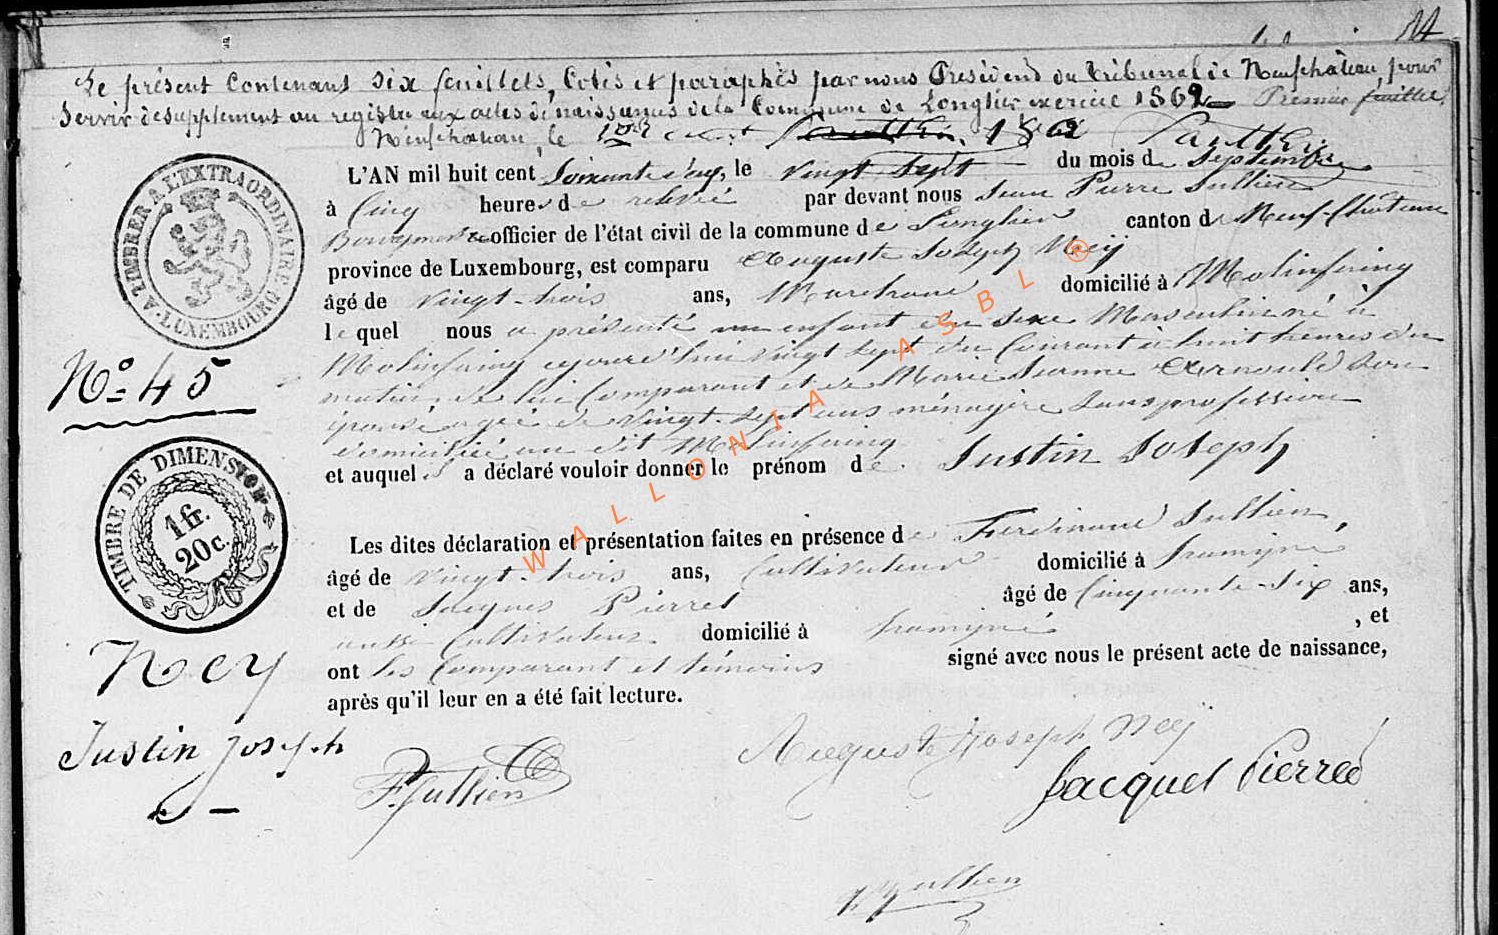 Le présent Contenant six feuillets, Cotés et paraphés par nous Président du Tribunal de Neufchâteau, pour
Servir de supplement au registre aux actes de naissances de la Commune de Longlier exercice 1862 Premier feuillet
Neufchateau, le 1862
L'AN mil huit cent Soixante deux, le vingt Sept du mois de Septembre
à Cinq heures de relevé par devant nous Jean Pierre Jullien
Bourgmestre officier de l'état civil de la commune de Longlier canton de Neuf-Château
province de Luxembourg, est comparu Auguste Joseph Neÿ
âgé de vingt-trois ans, Marchand domicilié à Molinfaing
lequel nous a présenté un enfant du sexe Masculin né à
Molinfaing cejourd'hui vingt sept du Courant à huit heures du
matin, de lui Comparant et de Marie Jeanne Arnould son
épouse agée de vingt-sept ans ménagère sans profession
domiciliée au dit Molinfaing
et auquel il a déclaré vouloir donner le prénom de Justin Joseph
Les dites déclaration et présentation faites en présence de Ferdinand Jullien,
âgé de vingt-trois ans, Cultivateur domicilié à tramigné
et de Jacques Pierret âgé de Cinquante-Six ans,
aussi Cultivateur domicilié à tramigné, et
ont les Comparant et témoins signé avec nous le présent acte de naissance,
après qu'il leur en a été fait lecture.
A TIMBRER A L'EXTRAORDINAIRE
LUXEMBOURG
No. 45
TIMBRE DE DIMENSION
1 fr.
20 c.
Ney
Justin Joseph
F. Jullien
Auguste Joseph Neÿ
Jacques Pierred
Jullien
WALLONIA ASBL ®